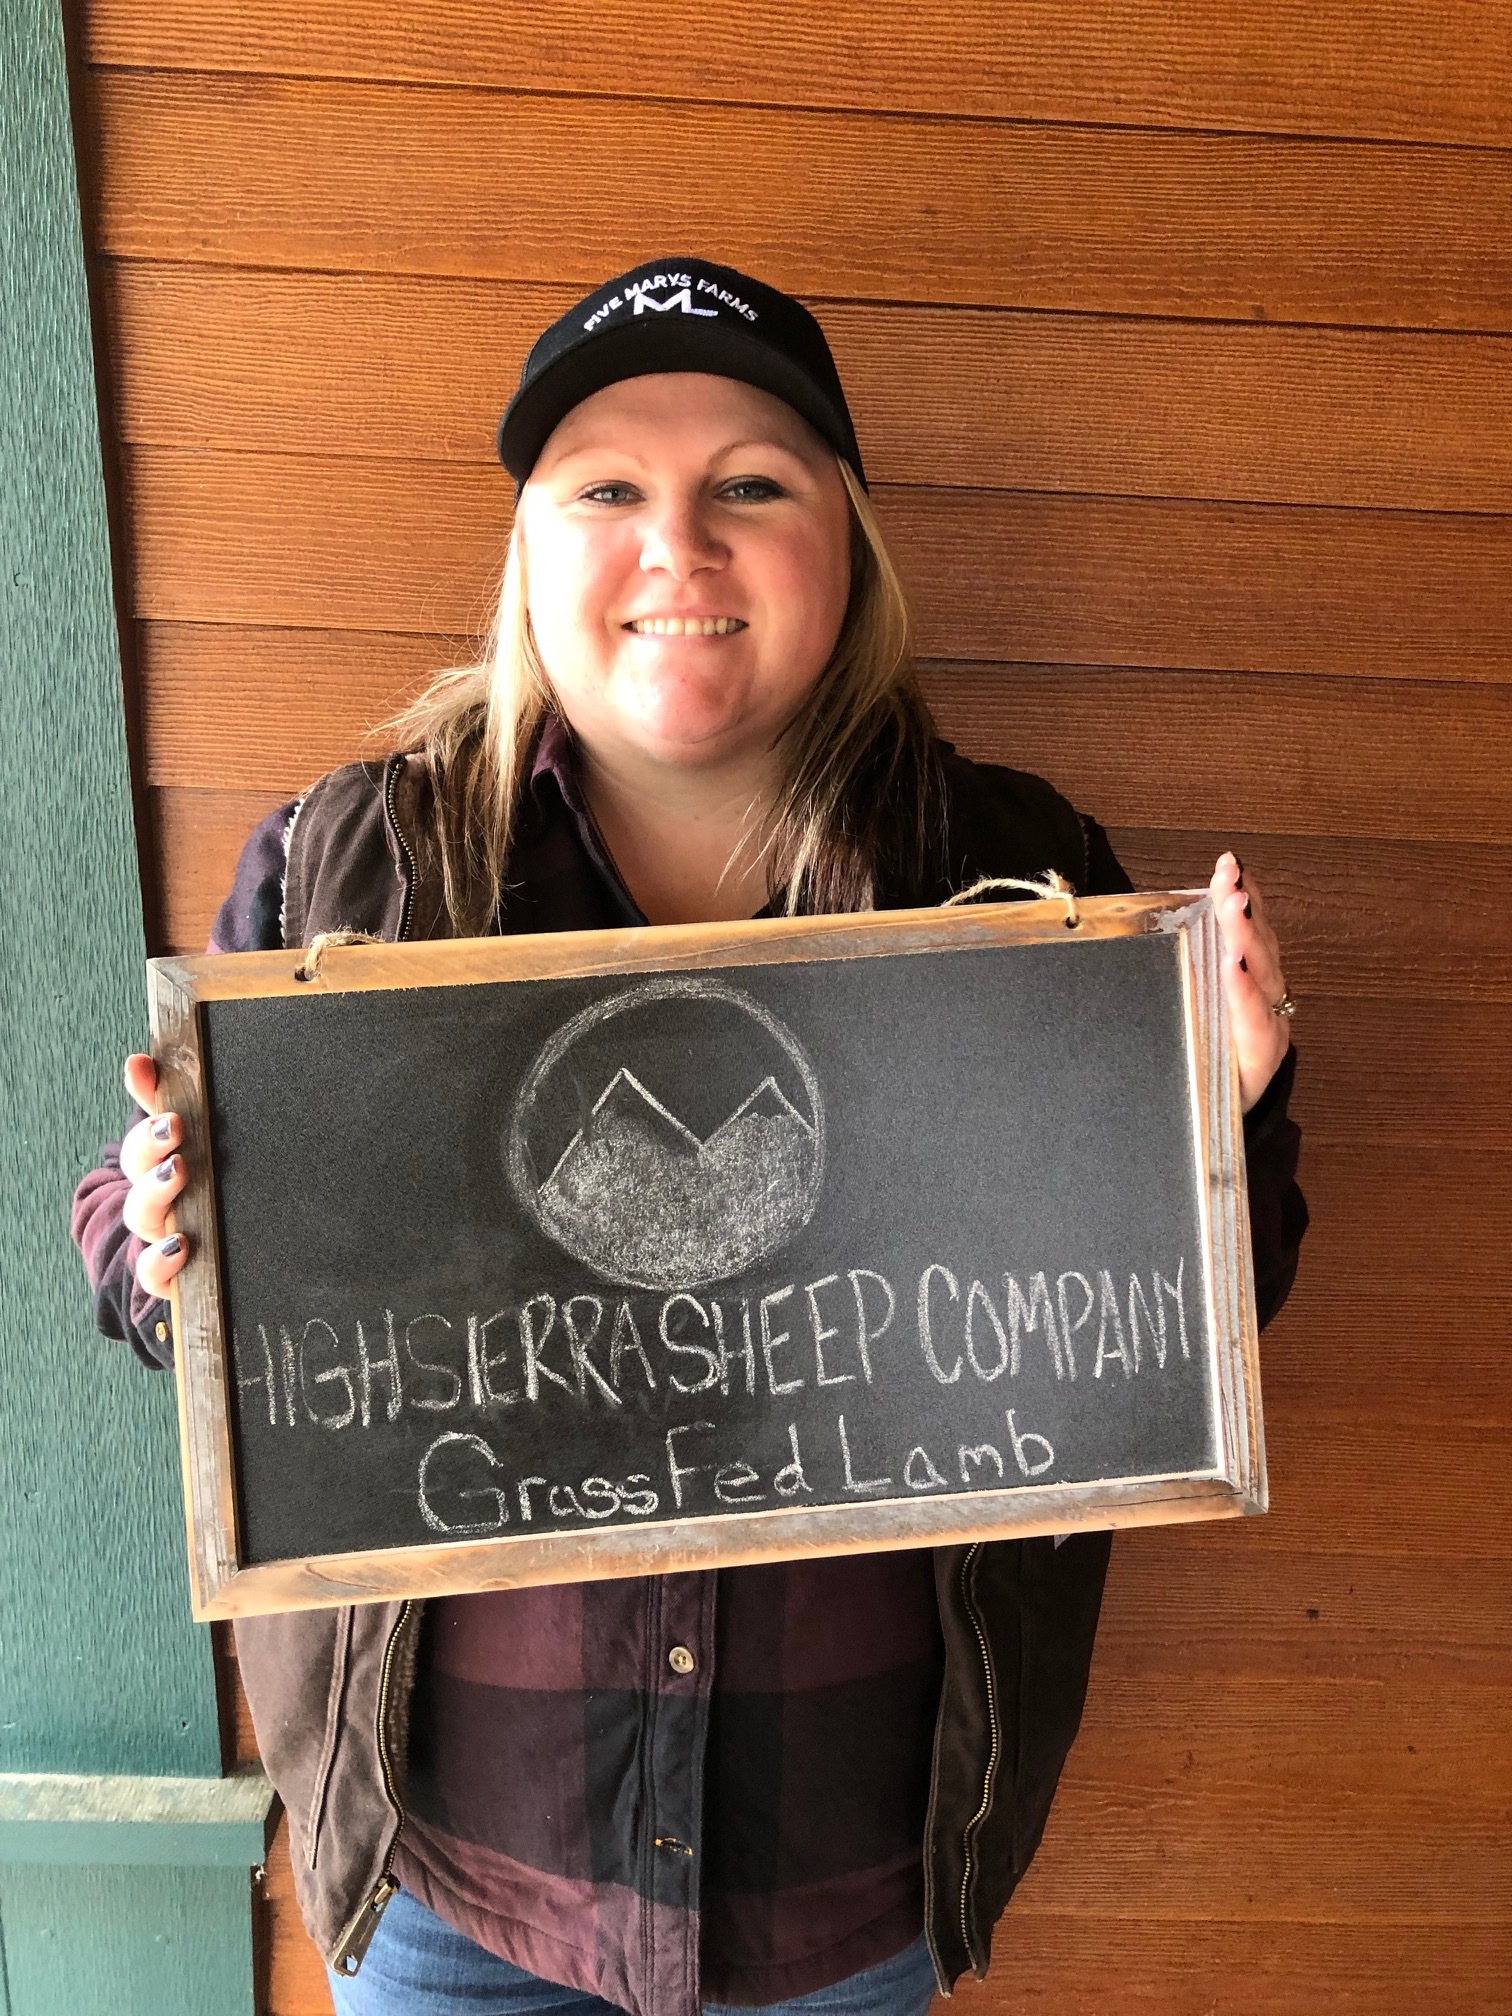 FIVE MARYS FARMS
M
HIGH SIERRA SHEEP COMPANY
Grass Fed Lamb